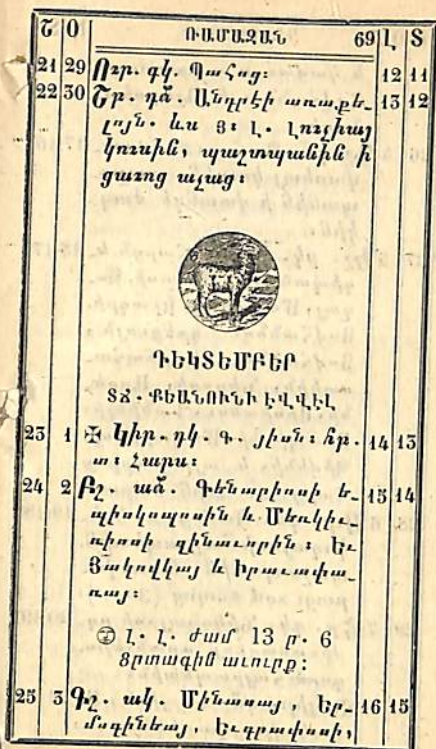 Շ Օ ՌԱՄԱԶԱՆ 69 Լ Տ
21 29 Ուր. գկ. Պահոց։ 12 11
22 30 Շբ. դձ. Անդրէի առաքե֊ 13 12
լոյն. ևս Յ։ Լ. Լուչիայ
կուսին, պաշտպանին ի
ցաւոց աչաց։
ԴԵԿՏԵՄԲԵՐ
ՏՃ. ՔԵԱՆՈՒՆԻ ԷՎՎԷԼ
23 1 ✠ Կիր. դկ. գ. յիսն։ հր. 14 13
տ։ Հարս։
24 2 Բշ. աձ. Գենարիոսի ե֊ 15 14
պիսկոպոսին և Մեռկիւ֊
ռիոսի զինաւորին։ Եւ
Յակովկայ և Իրաւափա֊
ռայ։
Լ. Լ. ժամ 13 ր. 6
Ցրտագին աւուրք։
25 3 Գշ. ակ. Մինասայ, Եր֊ 16 15
մոգինեայ, Եւգրափոսի,